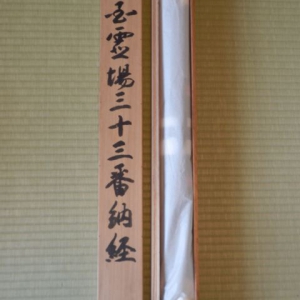 玉霊場三十三番納経